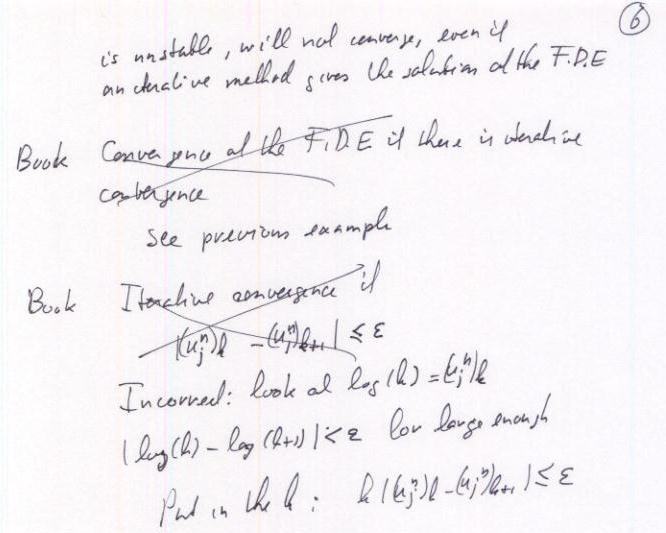 6
is unstable, will not converge, even if
an iterative method gives the solution of the F.D.E
Book Convergence of the F.D.E if there is iterative
convergence
See previous example
Book Iterative convergence if
|(u_j^n)_k - (u_j^n)_{k+1}| ≤ ε
Incorrect: look at log(k) = (u_j^n)_k
|log(k) - log(k+1)| < ε for large enough
Put in the k: k|(u_j^n)_k - (u_j^n)_{k+1}| ≤ ε